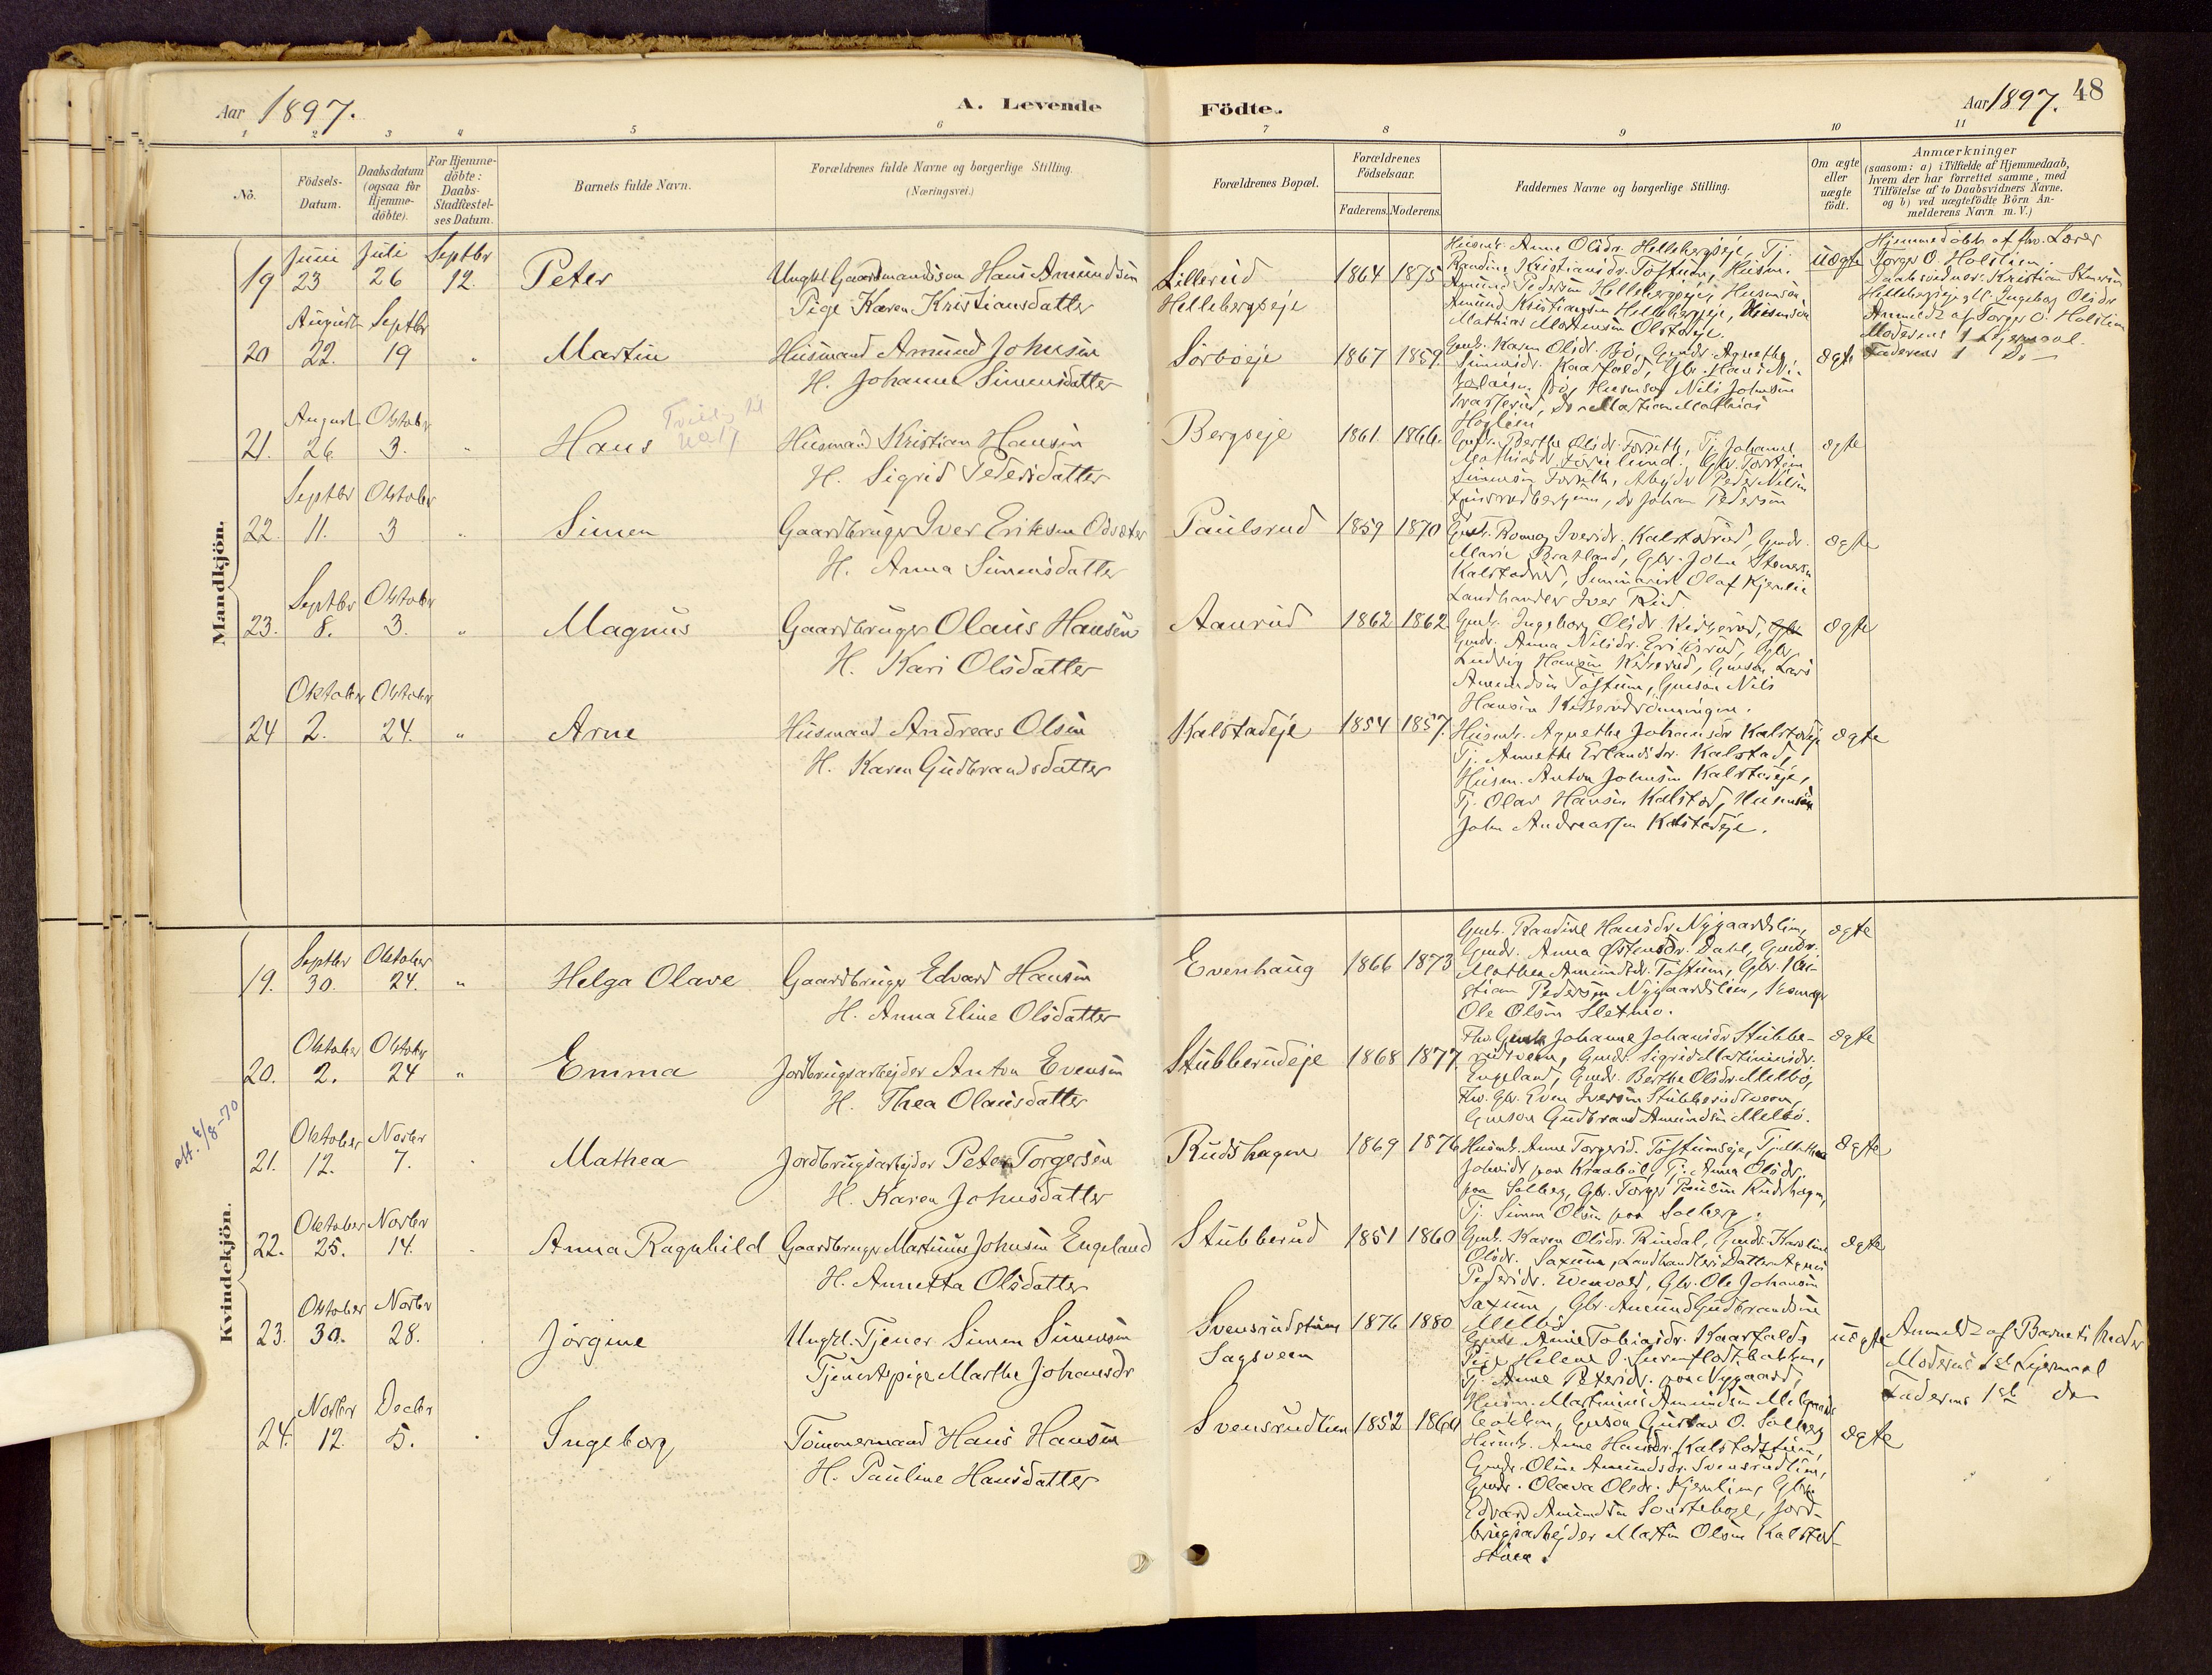 Aar 1897.
A. Levende
Födte.
Aar 1897.
48
1 2 3 4 5 6 7 8 9 10 11
No.
Födsels-Datum.
Daabsdatum (ogsaa for Hjemme-döbte).
For Hjemme-döbte: Daabs-Stadfæstel-ses Datum.
Barnets fulde Navn.
Forældrenes fulde Navne og borgerlige Stilling.
(Næringsvei.)
Forældrenes Bopæl.
Forældrenes Födselsaar.
Faderens. Moderens.
Faddernes Navne og borgerlige Stilling.
Om ægte eller uægte födt.
Anmærkninger
(saasom: a) i Tilfælde af Hjemmedaab, hvem der har forrettet samme, med Tilföielse af to Daabsvidners Navne, og b) ved uægtefödte Börn Anmelderens Navn m. V.)
Mandkjön.
19 Juni 23 Juli 26 Septbr 12. Peter
Ungkl. Gaardmandssön Hans Amundsen
Pige Karen Kristiansdatter
Lillerud
Hellebergseje
1864 1875
Husmk. Anne Olsdr. Hellebergseje, Tj.
Randine Kristiansdr. Tostum, Husm.
Amund Pedersen Hellebergseje, Husmsön
Amund Kristiansen Hellebergseje, Husmsön
Mathias Mortensen
uægte
Hjemmedöbt af fhv. Lærer
Torger O. Holstien.
Daabsvidner: Kristian
Hellebergseje og Ingeborg Olsdr
Anmeldt af Torger O. Holstien
Moderens 1 Leiermaal.
Faderens 1 Do
20 August 22. Septbr 19 " Martin
Husmand Amund Johnsen
H. Johanne Simensdatter
Sörboeje
1867 1859.
Gmk. Karen Olsdr. Bö, Gmdr. Agnethe
Simensdr. Kaarfald, Gbr. Hans
Bö, Husmsön Nils Johnsen
Mathias
ægte
21. August 26. Oktober 3. " Hans
Husmand Kristian Hansen
H. Sigrid Pedersdatter
Bergseje
1861 1866.
Gmk. Berthe Olsdr. Forseth, Tj. Johanne
Mathiasdr.
Simensen Forseth, Peder Nilsen
Do Johan Pedersen
ægte
22. Septbr 11. Oktober 3 " Simen
Gaardbruger Iver Eriksen Odsæter
H. Anna Simensdatter
Paulsrud
1859 1870
Gmk. Romoy Iversdr. Kalstadrud, Gmdr.
Marie Bratland, Gbr. John Stenersen
Kalstadrud, Seminarist Olaf Kjernlie
Landhandler Iver Rud.
ægte
23. Septbr 8. Oktober 3. " Magnus
Gaardbruger Olaus Hansen
H. Kari Olsdatter
Aanrud
1862 1862
Gmk. Ingeborg Olsdr.
Gmdr. Anna Nilsdr. Eriksrud, Gbr.
Ludvig Hansen Gmsön Lars
Amundsen Tostum, Gmsön Nils
Hansen
ægte
24 Oktober 2. Oktober 24. " Arne
Husmand Andreas Olsen
H. Karen Gudbrandsdatter
Kalstadeje
1854 1857.
Husmk. Agnethe Johansdr Kalstadeje
Tj. Annethe Erlandsdr. Kalstad,
Husm. Anton Johnsen Kalstadeje,
Tj. Olav Hansen Kalstad, Husmsön
John Andreassen Kalstadeje.
ægte
Kvindekjön.
19. Septbr 30. Oktober 24. " Helga Olave
Gaardbruger Edvard Hansen
H. Anna Eline Olsdatter
Evenhaug
1866 1873
Gmk. Randine Hansdr Nygaardslien,
Gmdr. Anna Østensdr. Dahl, Gmdr.
Mathea Amundsdr. Tostum, Gbr. Kri-
stian Pedersen Nygaardslien, Skomager
Ole Olsen Sletmo.
ægte
20. Oktober 2. Oktober 24 " Emma
Jordbrugsarbejder Anton Evensen
H. Thea Olausdatter
Stubberudeje
1868 1877.
Fhv. Gmk Johanne Johansdr Stubbe-
rudsveen, Gmdr. Sigrid Martinusdr.
Engeland, Gmdr. Berthe Olsdr. Melbö,
Fhv. Gbr. Even Iversen Stubberudsveen,
Gmsön Gudbrand Amundsen Melbö.
ægte
att. 4/8-70
21. Oktober 12. Novbr 7. Mathea
Jordbrugsarbejder Peter Torgersen
H. Karen Johnsdatter
Rudshagen
1869 1876
Husmk. Anne Torgersd. Tostumseje,
Johnsdr paa Kraaböl, Tj. Anna Olsdr.
paa Solberg, Gbr. Torger Paulsen Rudshagen,
Tj. Simen Olsen paa Solberg.
ægte
22. Oktober 25. Novbr 14. Anna Ragnhild
Gaardbruger Martinus Johnsen Engeland
H. Annetta Olsdatter
Stubberud
1851 1860
Gmk. Karen Olsdr. Rindal, Gmdr. Karoline
Olsdr. Saxum, Landhandlers Datter Agnes
Pedersdr. Evenvold, Gbr. Ole Johansen
Saxum, Gbr. Amund Gudbrandsen
Melbö
ægte
23. Oktober 30. Novbr 28. Jörgine
Ungkl. Tjener Simen Simensen
Tjenestepige Marthe Johansdr
Svensrudstuen
Sagsveen
1876 1880
Gmk. Anne Tobiasdr. Kaarfald,
Pige Helene
Tj. Anne Petersdr. paa Nygaard,
Husm. Martinius Amundsen
bakken, Gmsön Gustav O. Solberg
uægte
Anmeldt af Barnets Moder
Moderens 1st Leiermaal
Faderens 1st do
24. Novbr 12. Decbr 5. Ingeborg
Tömmermand Hans Hansen
H. Pauline Hansdatter
Svensrudlien
1852 1860
Husmk. Anne Hansdr. Kalstadstuen,
Gmdr. Oline Amundsdr. Svensrudlien,
Gmdr. Olava Olsdr. Kjernlien, Gbr.
Edvard Amundsen Jord-
brugsarbejder Martin Olsen Kalstad-
stuen.
ægte